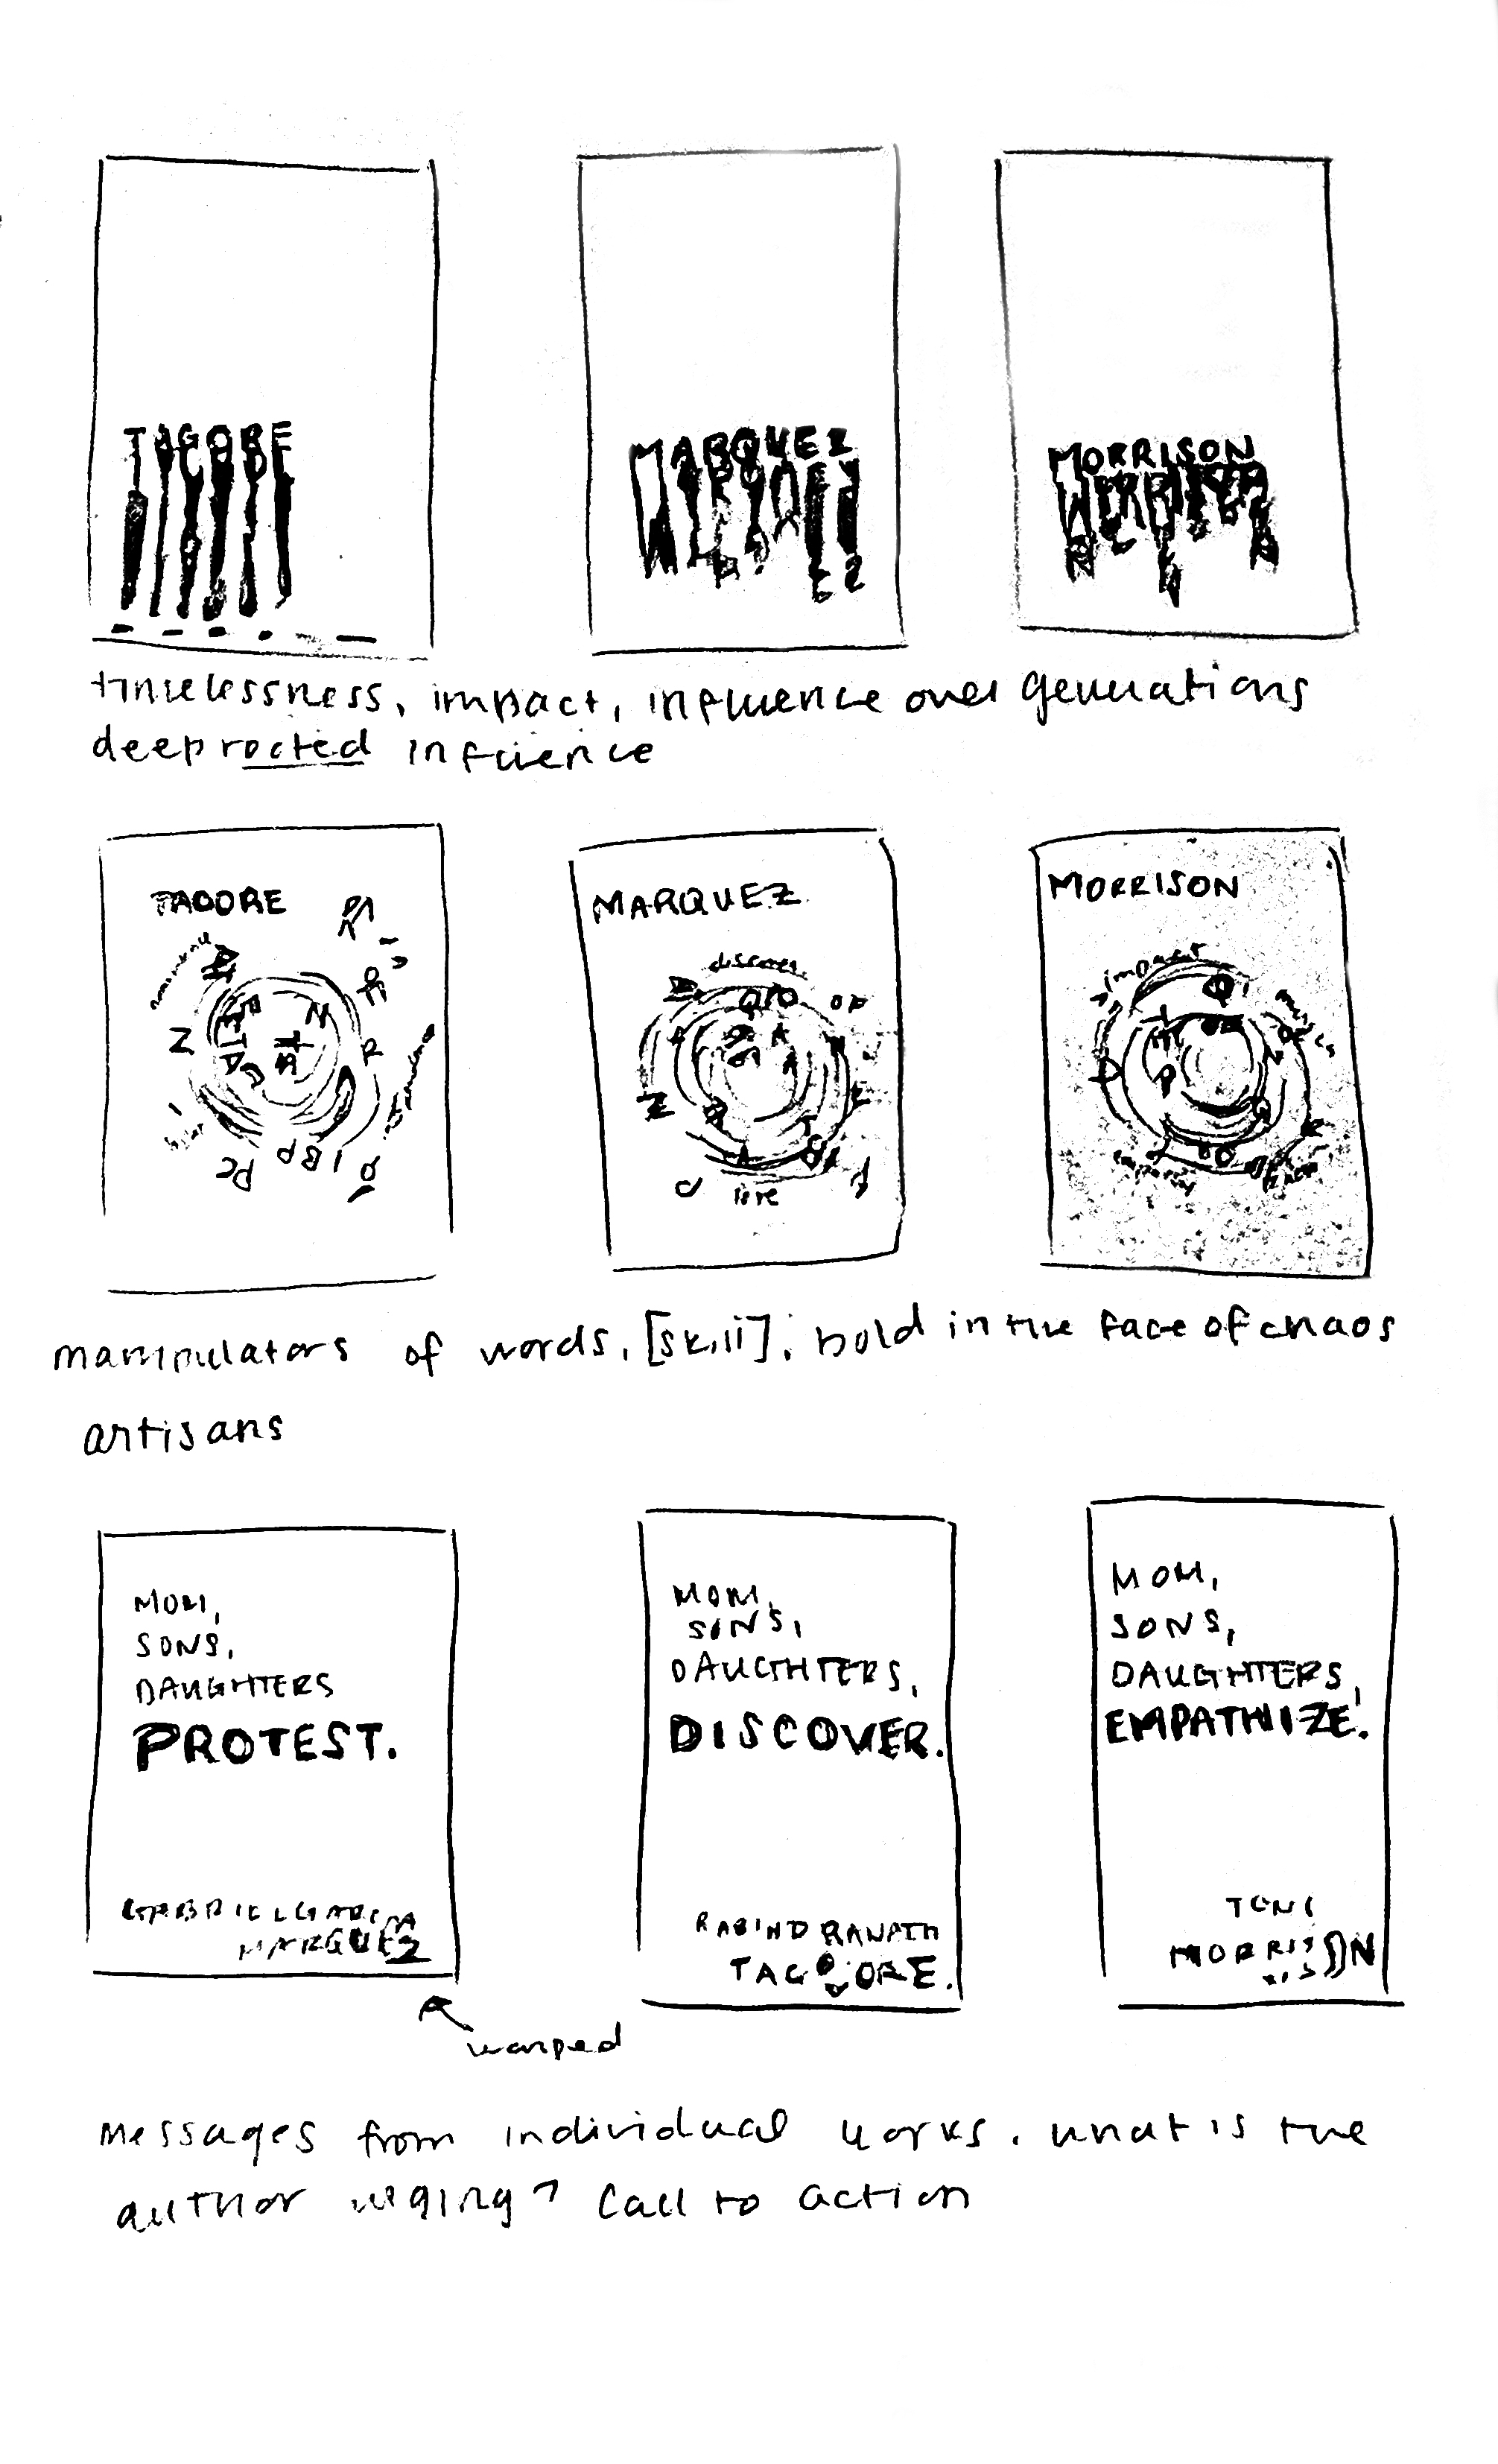 TAGORE
MARQUEZ
MORRISON
timelessness, impact, influence over generations
deeprooted influence
TAGORE
MARQUEZ
discover
op
love
MORRISON
impact
manipulators of words, [skill], bold in the face of chaos
artisans
MOM,
SONS,
DAUGHTERS
PROTEST.
GABRIEL GARCIA
MARQUEZ
warped
MOM,
SONS,
DAUGHTERS,
DISCOVER.
RABINDRANATH
TAGORE.
MOM,
SONS,
DAUGHTERS,
EMPATHIZE.
TONI
MORRISON
Messages from individual works. what is the
author urging? Call to action